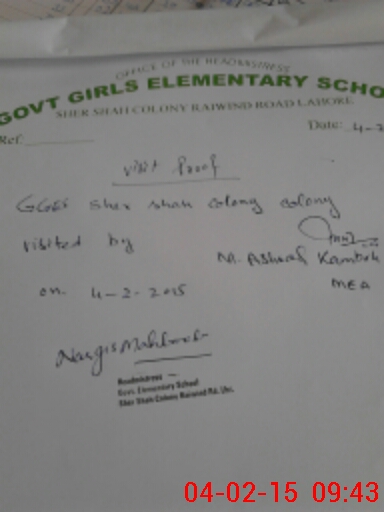 OFFICE OF THE HEADMISTRESS
GOVT GIRLS ELEMENTARY SCHO
SHER SHAH COLONY RAIWIND ROAD LAHORE
Ref: Date: 4-2
visit Proof
GGES Sher shah colony colony
visited by
M. Ashraf Kamboh
on 4-2-2015
MEA
Nargis Mahboob
Headmistress
Govt. Elementary School
Sher Shah Colony Raiwind Rd. Lhr.
04-02-15 09:43